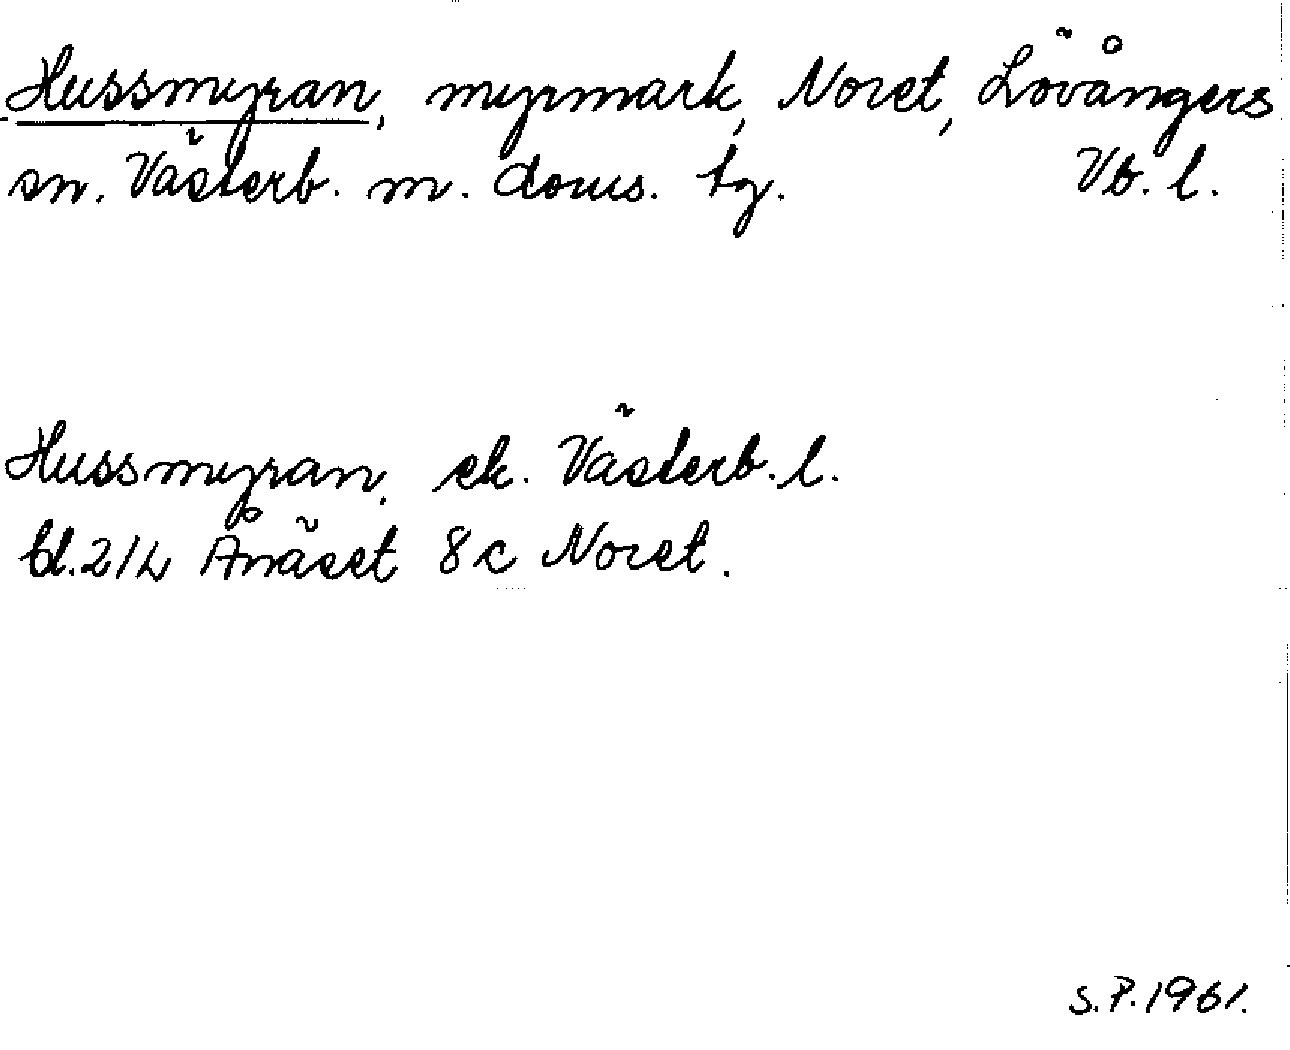 Hussmyran, myrmark, Noret, Lövångers
sn. Västerb. m. doms. tg. Vb. l.
Hussmyran, ek. Västerb. l.
bl. 21L Ånäset 8c Noret.
S.P. 1961.